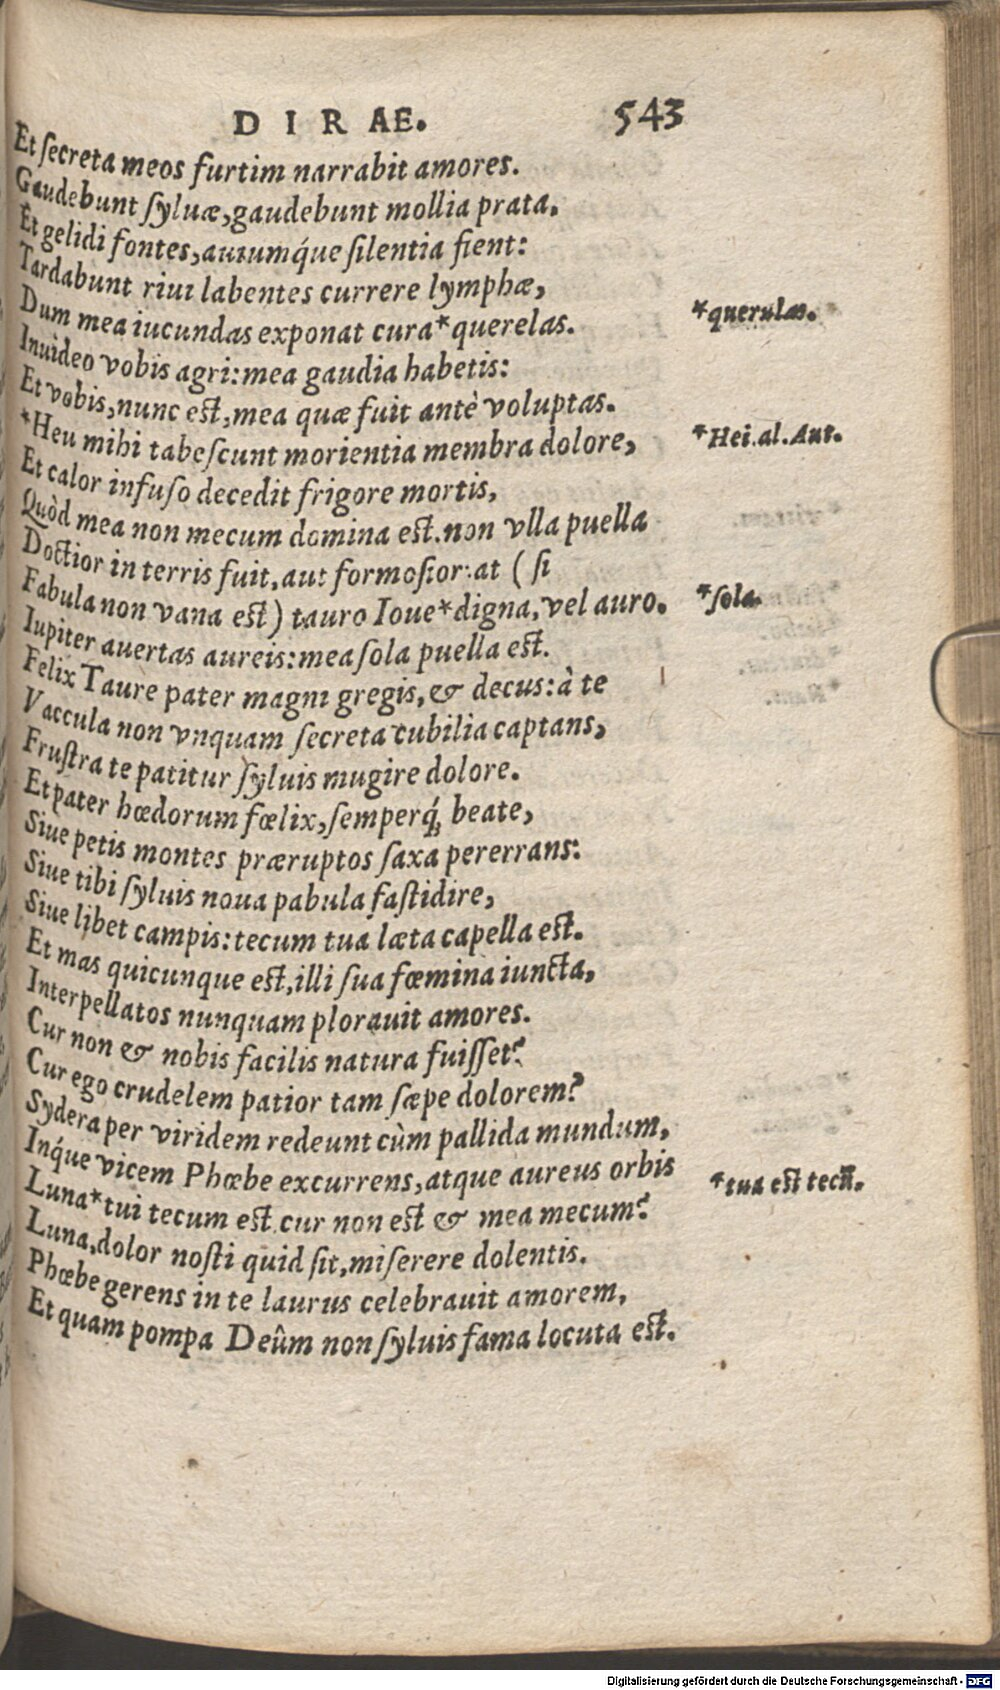 DIRAE. 543
Et ſecreta meos furtim narrabit amores.
Gaudebunt ſyluæ, gaudebunt mollia prata,
Et gelidi fontes, auiumq́ue ſilentia fient:
Tardabunt riui labentes currere lymphæ,
Dum mea iucundas exponat cura*querelas. *querulas.
Inuideo vobis agri: mea gaudia habetis:
Et vobis, nunc eſt, mea quæ fuit antè voluptas.
*Heu mihi tabeſcunt morientia membra dolore, *Hei. al. Aut.
Et calor infuſo decedit frigore mortis,
Quòd mea non mecum domina eſt. non vlla puella
Doctior in terris fuit, aut formoſior: at ( ſi
Fabula non vana eſt) tauro Ioue*digna, vel auro. *ſola.
Iupiter auertas aureis: mea ſola puella eſt.
Felix Taure pater magni gregis, & decus: à te
Vaccula non vnquam ſecreta cubilia captans,
Fruſtra te patitur ſyluis mugire dolore.
Et pater hœdorum fœlix, ſemperq́; beate,
Siue petis montes præruptos ſaxa pererrans:
Siue tibi ſyluis noua pabula faſtidire,
Siue libet campis: tecum tua læta capella eſt.
Et mas quicunque eſt, illi ſua fœmina iuncta,
Interpellatos nunquam plorauit amores.
Cur non & nobis facilis natura fuiſſet?
Cur ego crudelem patior tam ſæpe dolorem?
Sydera per viridem redeunt cùm pallida mundum,
Inq́ue vicem Phœbe excurrens, atque aureus orbis
Luna*tui tecum eſt. cur non eſt & mea mecum? *tua eſt tecũ.
Luna, dolor noſti quid ſit, miſerere dolentis.
Phœbe gerens in te laurus celebrauit amorem,
Et quam pompa Deûm non ſyluis fama locuta eſt.
Digitalisierung gefördert durch die Deutsche Forschungsgemeinschaft - DFG